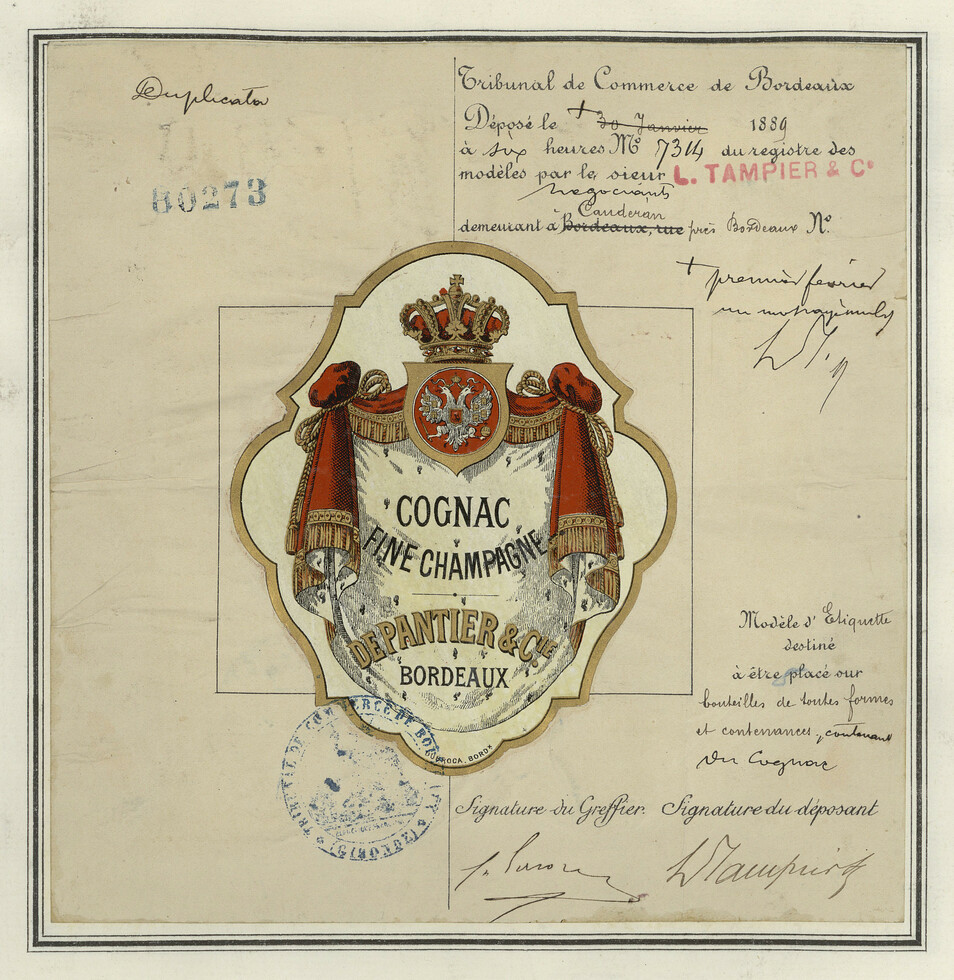 Duplicata
80273
Tribunal de Commerce de Bordeaux
Déposé le + 30 Janvier 1889
à six heures No 7314 du registre des
modèles par le sieur L. TAMPIER & Co
negociants
Cauderan
demeurant à Bordeaux, rue près Bordeaux No.
+ premier février
COGNAC
FINE CHAMPAGNE
DEPANTIER & CIE
BORDEAUX
BORDX
Modèle d'Etiquette
destiné
à être placé sur
bouteilles de toutes formes
et contenances, contenant
du Cognac
TRIBUNAL DE COMMERCE DE BORDEAUX
(GIRONDE)
Signature du Greffier. Signature du déposant
LTampier &